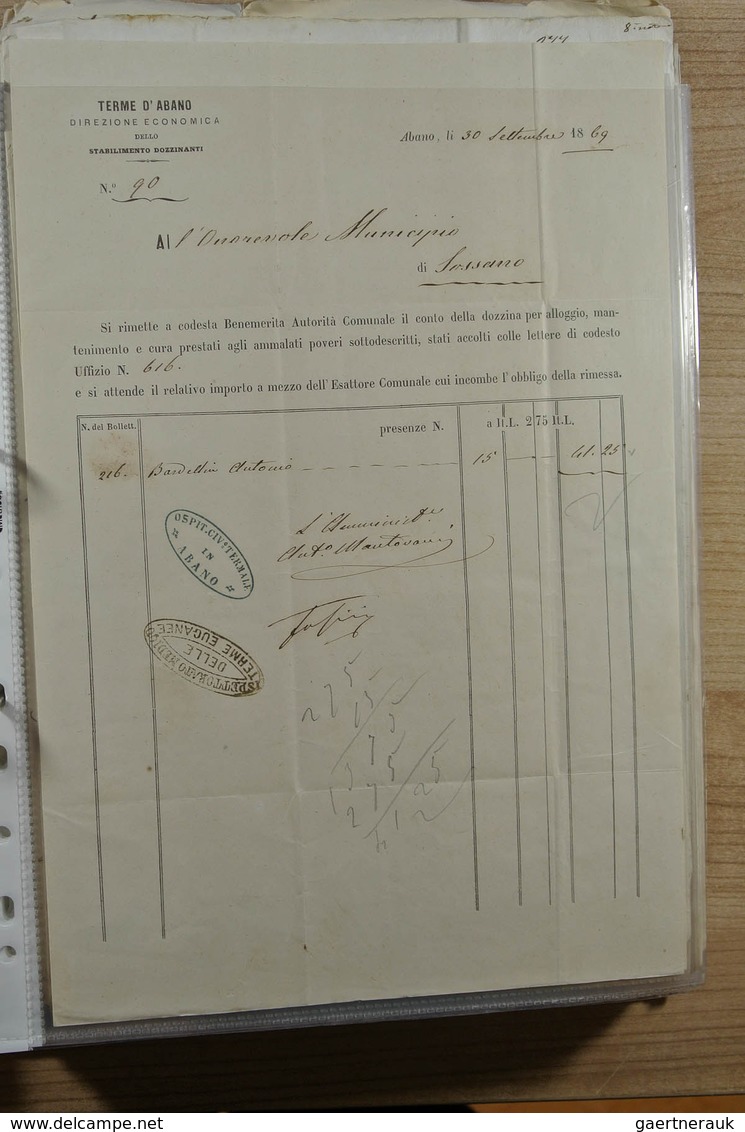 8
TERME D'ABANO
DIREZIONE ECONOMICA
DELLO
STABILIMENTO DOZZINANTI
Abano, li 30 Settembre 1869
N.º 90
Al l'Onorevole Municipio
di Sossano
Si rimette a codesta Benemerita Autorità Comunale il conto della dozzina per alloggio, man-
tenimento e cura prestati agli ammalati poveri sottodescritti, stati accolti colle lettere di codesto
Uffizio N. 616.
e si attende il relativo importo a mezzo dell'Esattore Comunale cui incombe l'obbligo della rimessa.
N. del Bollett. presenze N. a It.L. 2 75 It.L.
216. Bardellin Antonio 15 41. 25
OSPIT. CIV.º TERMALE
IN
ABANO
L'Amministr.e
Ant.º Mantovani
ISPETTORATO MEDICO
DELLE
TERME EUGANEE
275
15
1375
275
4125
delcampe.net
gaertnerauk